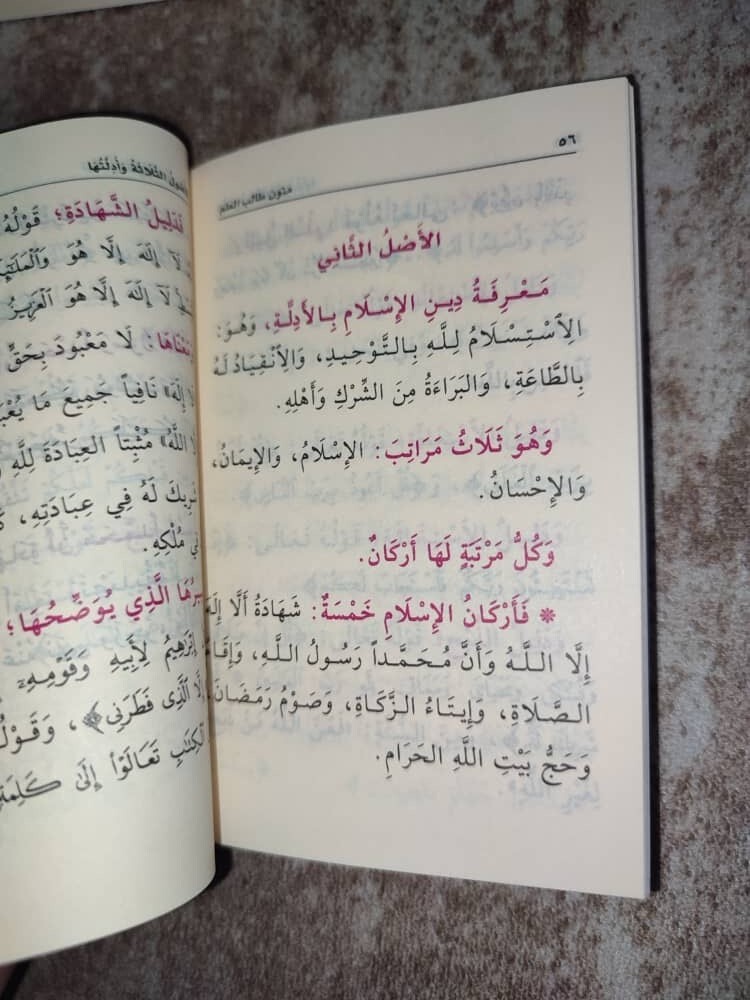 ٥٦
متون طالب العلم
الأَصْلُ الثَّانِي
مَعْرِفَةُ دِينِ الإِسْلَامِ بِالأَدِلَّةِ، وَهُوَ:
الِاسْتِسْلَامُ لِلَّهِ بِالتَّوْحِيدِ، وَالِانْقِيَادُ لَهُ
بِالطَّاعَةِ، وَالبَرَاءَةُ مِنَ الشِّرْكِ وَأَهْلِهِ.
وَهُوَ ثَلَاثُ مَرَاتِبَ: الإِسْلَامُ، وَالإِيمَانُ،
وَالإِحْسَانُ.
وَكُلُّ مَرْتَبَةٍ لَهَا أَرْكَانٌ.
* فَأَرْكَانُ الإِسْلَامِ خَمْسَةٌ: شَهَادَةُ أَلَّا إِلَهَ
إِلَّا اللَّهُ وَأَنَّ مُحَمَّداً رَسُولُ اللَّهِ، وَإِقَامُ
الصَّلَاةِ، وَإِيتَاءُ الزَّكَاةِ، وَصَوْمُ رَمَضَانَ،
وَحَجُّ بَيْتِ اللَّهِ الحَرَامِ.
الثَّلَاثَةُ وَأَدِلَّتُهَا
فَدَلِيلُ الشَّهَادَةِ؛ قَوْلُهُ
لَا إِلَٰهَ إِلَّا هُوَ
لَا إِلَٰهَ إِلَّا هُوَ الْعَزِيزُ
لَا مَعْبُودَ بِحَقٍّ
نَافِياً جَمِيعَ مَا
مُثْبِتاً العِبَادَةَ لِلَّهِ
لَهُ فِي عِبَادَتِهِ،
مُلْكِهِ.
الَّذِي يُوَضِّحُهَا؛
لِأَبِيهِ وَقَوْمِهِ
الَّذِى فَطَرَنِى﴾، وَقَوْلُ
تَعَالَوْا إِلَىٰ